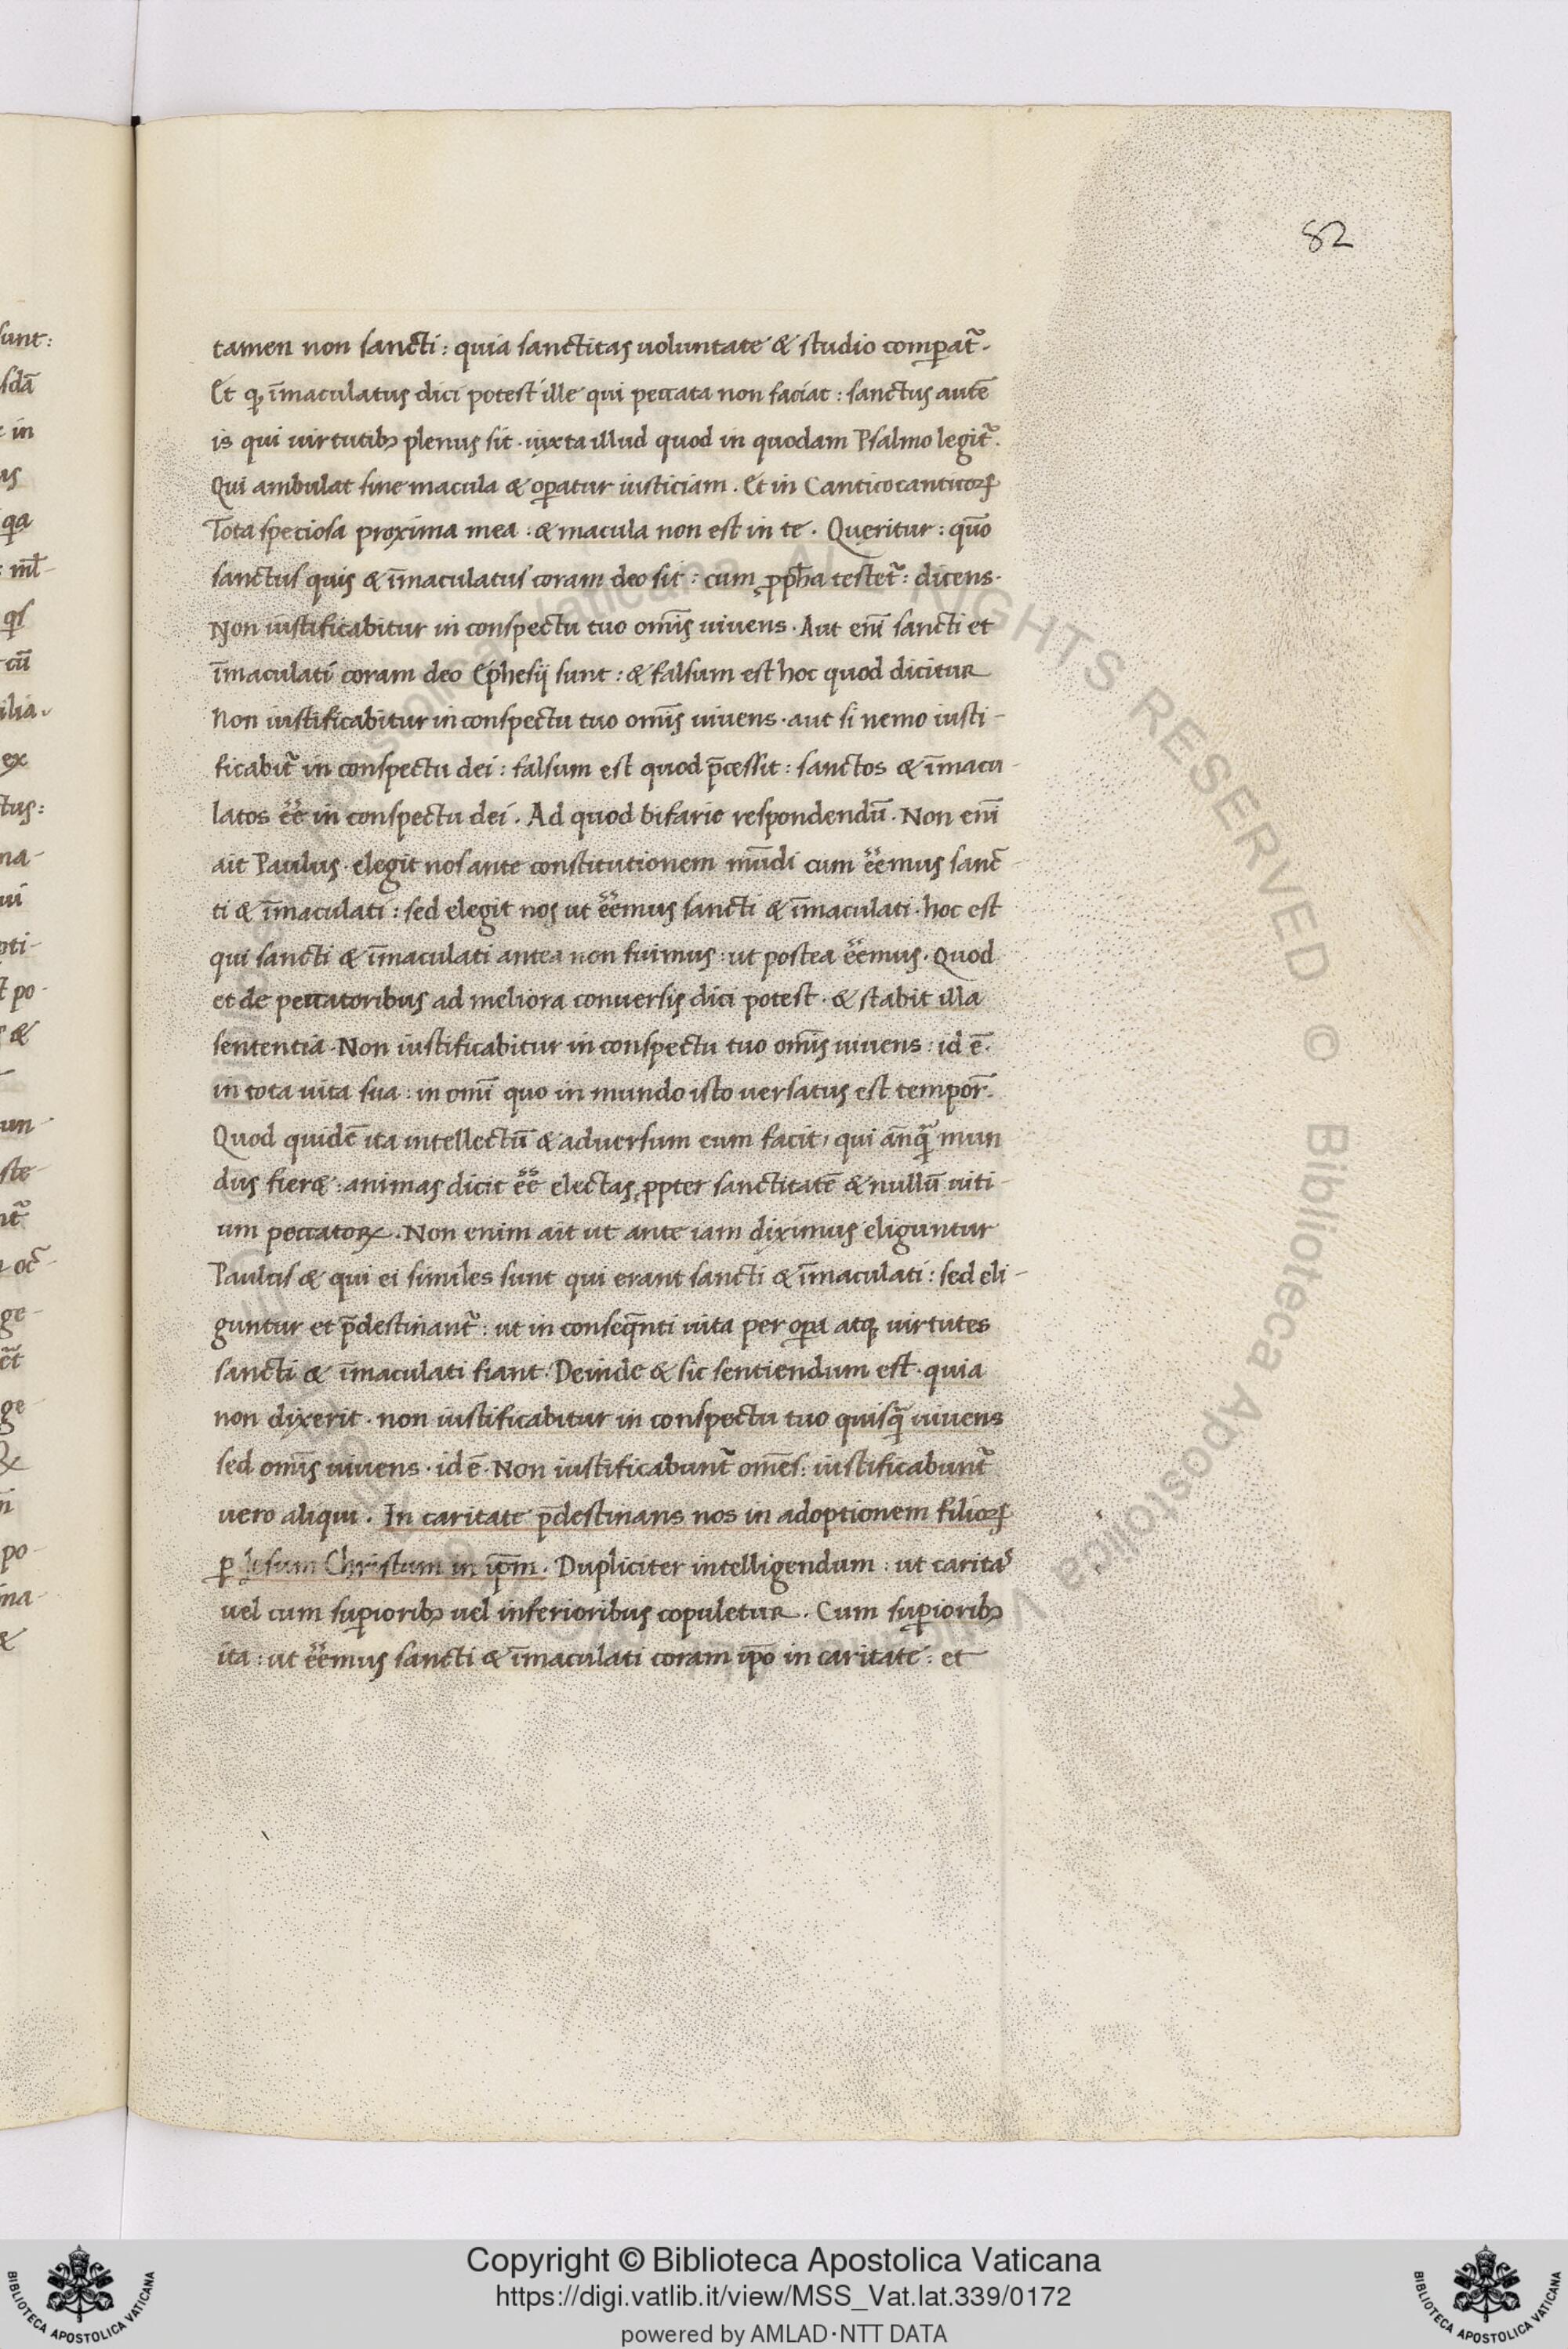 82
tamen non sancti: quia sanctitas uoluntate & studio comꝑat᷑.
Et ꝙ īmaculatus dici potest ille qui peccata non faciat: sanctus autē
is qui uirtutibꝫ plenus sit. iuxta illud quod in quodam Psalmo legit᷑.
Qui ambulat sine macula & oꝑatur iusticiam. Et in Canticocanticoꝝ
Tota speciosa proxima mea: & macula non est in te. Queritur: quō
sanctus quis & īmaculatus coram deo sit: cum ꝓph̄a testet᷑: dicens.
Non iustificabitur in conspectu tuo om̄is uiuens. Aut enī sancti et
īmaculati coram deo Ephesij sunt: & falsum est hoc quod dicitur
Non iustificabitur in conspectu tuo om̄is uiuens. aut si nemo iusti-
ficabit᷑ in conspectu dei: falsum est quod p̄cessit: sanctos & īmacu-
latos ēē in conspectu dei. Ad quod bifarie respondendū. Non enī
ait Paulus. elegit nos ante constitutionem mūdi cum ēēmus sanc-
ti & īmaculati: sed elegit nos ut ēēmus sancti & īmaculati. hoc est
qui sancti & īmaculati antea non fuimus: ut postea ēēmus. Quod
et de peccatoribus ad meliora conuersis dici potest. & stabit illa
sententia. Non iustificabitur in conspectu tuo om̄is uiuens: id ē.
in tota uita sua: in omī quo in mundo isto uersatus est tempor̄.
Quod quidē ita intellectū & aduersum eum facit, qui anq̄ᷓ mun
dus fier&: animas dicit ēē electas ꝓpter sanctitatē & nullū uiti-
um peccatoꝝ. Non enim ait ut ante iam diximus eliguntur
Paulus & qui ei similes sunt qui erant sancti & īmaculati: sed eli-
guntur et p̄destinant᷑: ut in conseq̄nti uita per oꝑa atqꝫ uirtutes
sancti & īmaculati fiant. Deinde & sic sentiendum est. quia
non dixerit. non iustificabitur in conspectu tuo quisq̄ᷓ uiuens
sed om̄is uiuens. id ē. Non iustificabunt᷑ om̄es: iustificabunt᷑
uero aliqui. In caritate p̄destinans nos in adoptionem filioꝝ
ꝑ Jesum Christum in ip̄m. Dupliciter intelligendum: ut caritas
uel cum suꝑioribꝫ uel inferioribus copuletur. Cum suꝑioribꝫ
ita: ut ēēmus sancti & īmaculati coram ip̄o in caritate: et
Copyright © Biblioteca Apostolica Vaticana
https://digi.vatlib.it/view/MSS_Vat.lat.339/0172
powered by AMLAD·NTT DATA